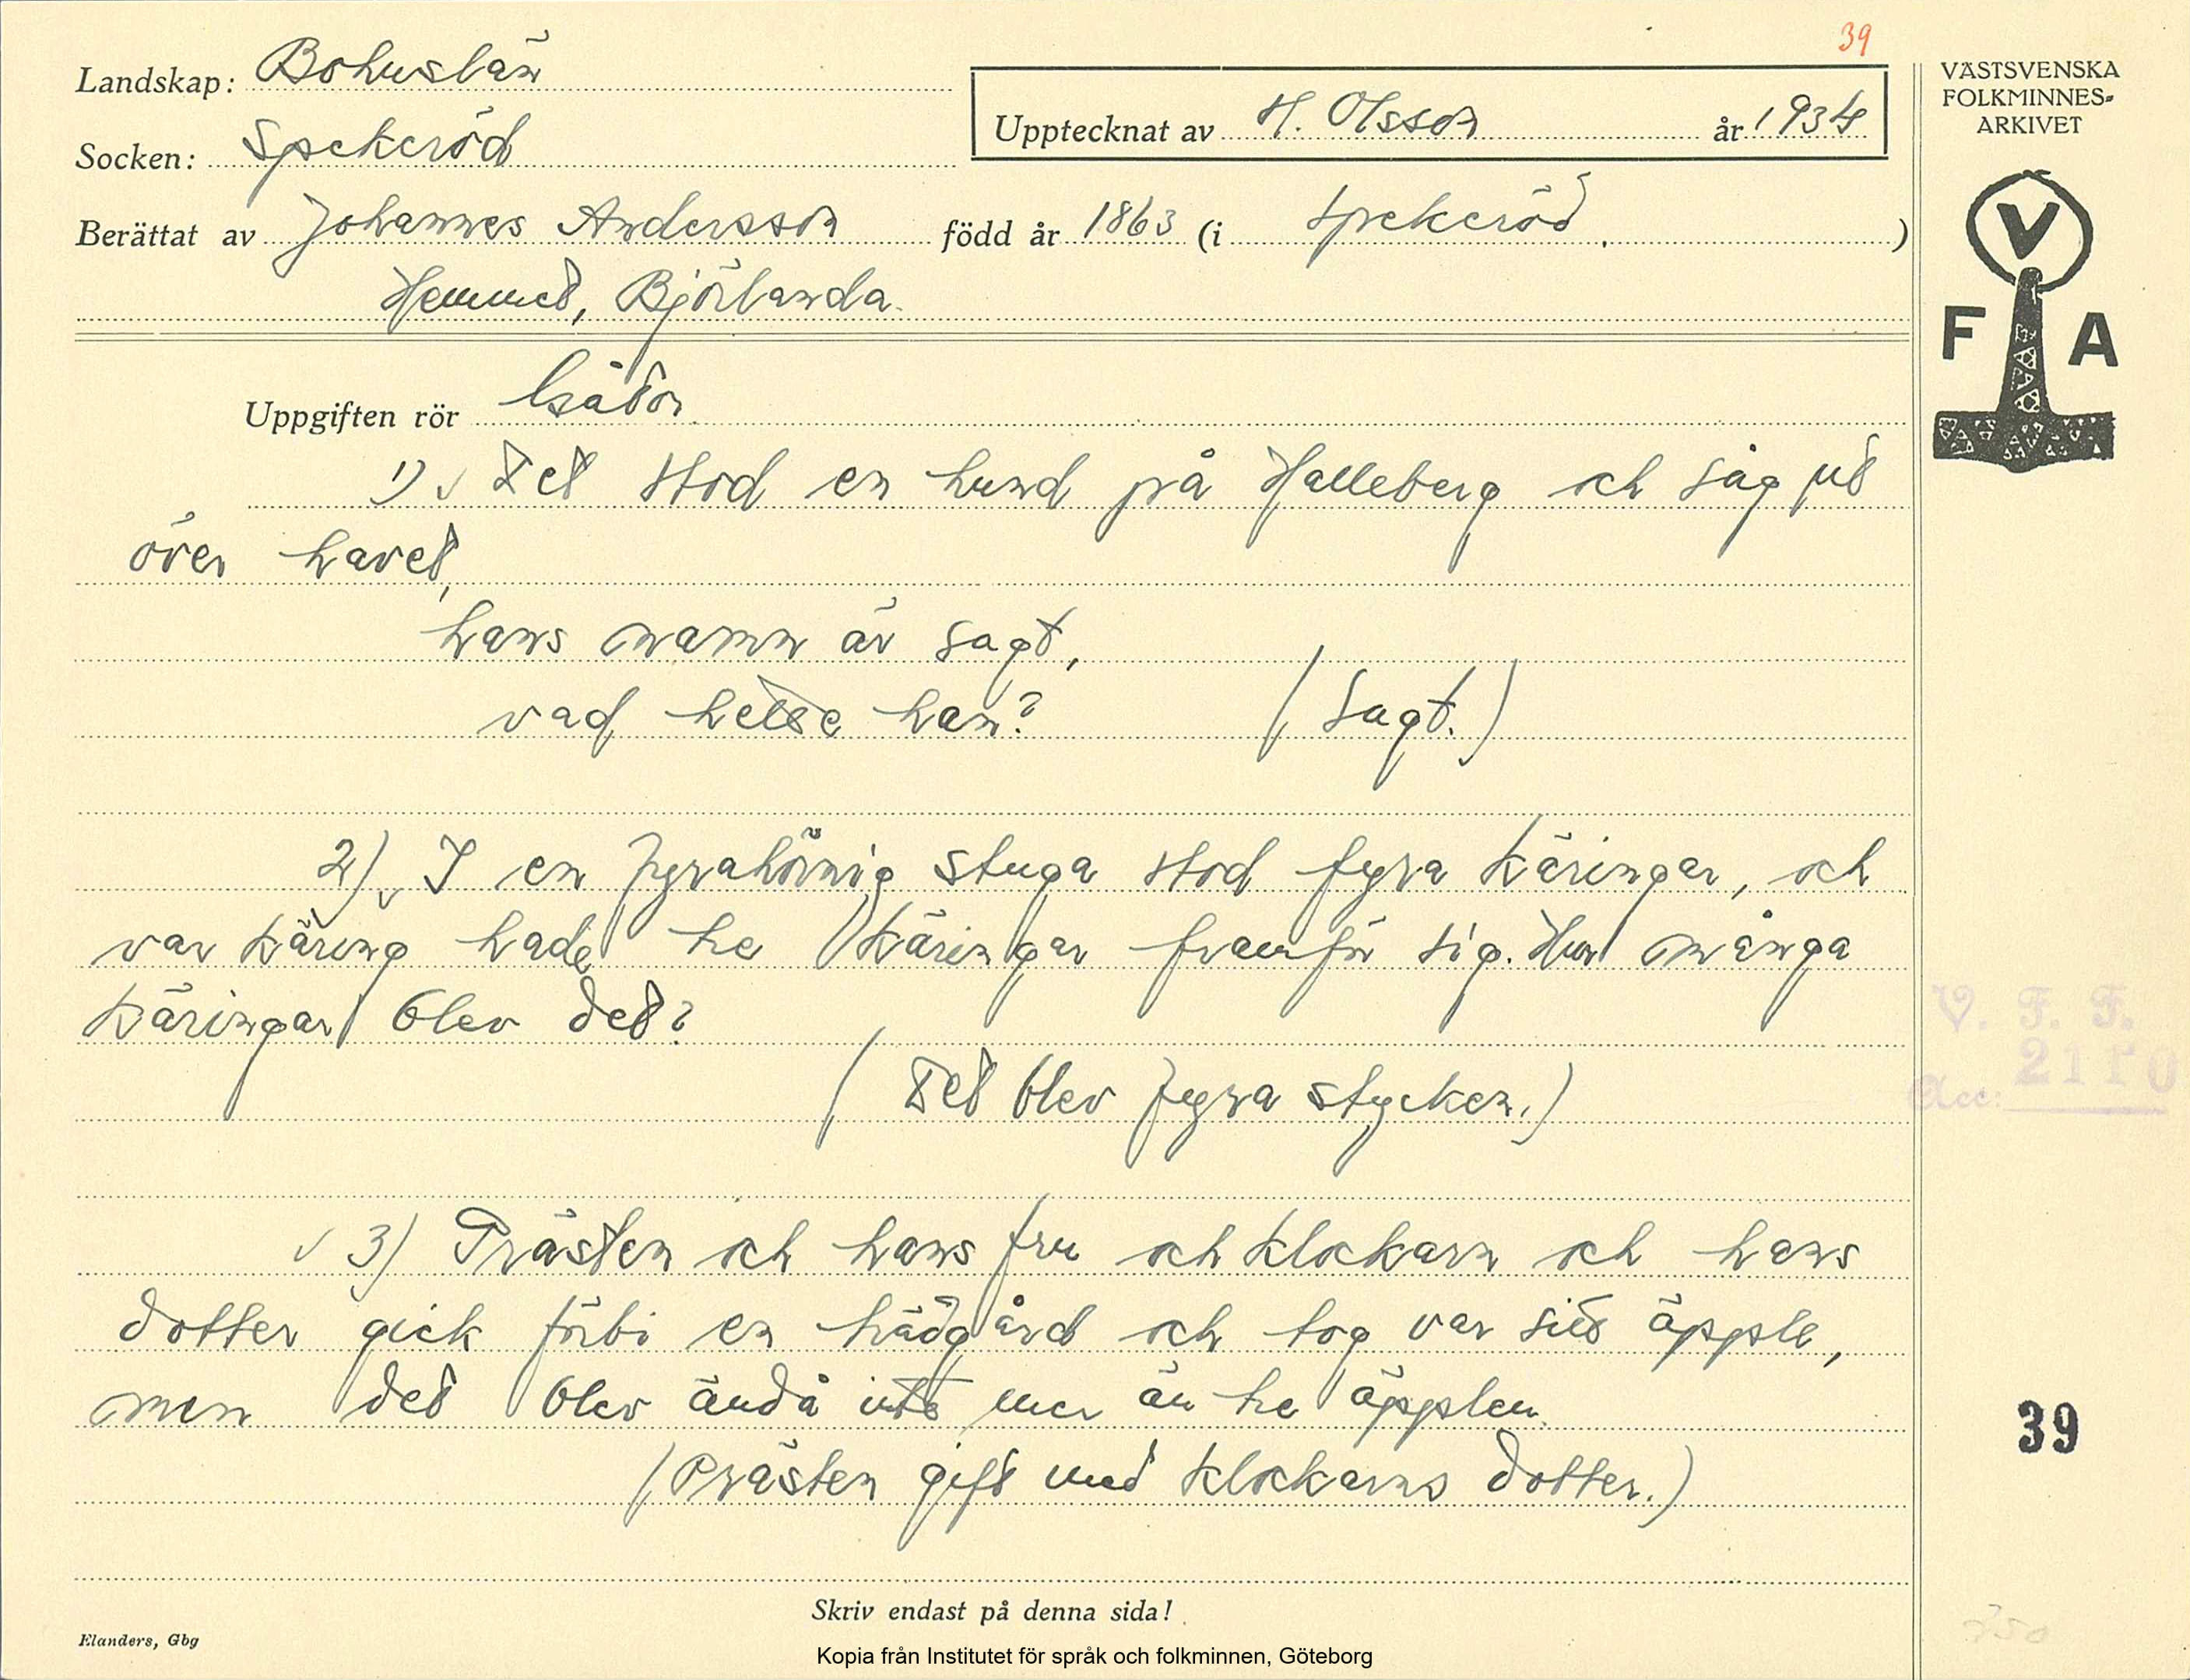 39
Landskap: Bohuslän
Upptecknat av H. Olsson år 1934
Socken: Spekeröd
Berättat av Johannes Andersson född år 1863 (i Spekeröd.)
Hemmet, Björlanda.
VÄSTSVENSKA
FOLKMINNES-
ARKIVET
V
F A
Uppgiften rör Gåtor.
1) Det stod en hund på Halleberg och såg ut
över havet,
hans namn är sagt,
vad hette han? (Sagt.)
2) I en fyrahörnig stuga stod fyra käringar, och
var käring hade tre käringar framför sig. Hur många
käringar blev det?
(Det blev fyra stycken.)
3) Prästen och hans fru och klockarn och hans
dotter gick förbi en trädgård och tog var sitt äpple,
men det blev ändå inte mer än tre äpplen.
(Prästen gift med klockarns dotter.)
V. F. F.
Acc: 2110
39
Skriv endast på denna sida!
Elanders, Gbg
Kopia från Institutet för språk och folkminnen, Göteborg
350